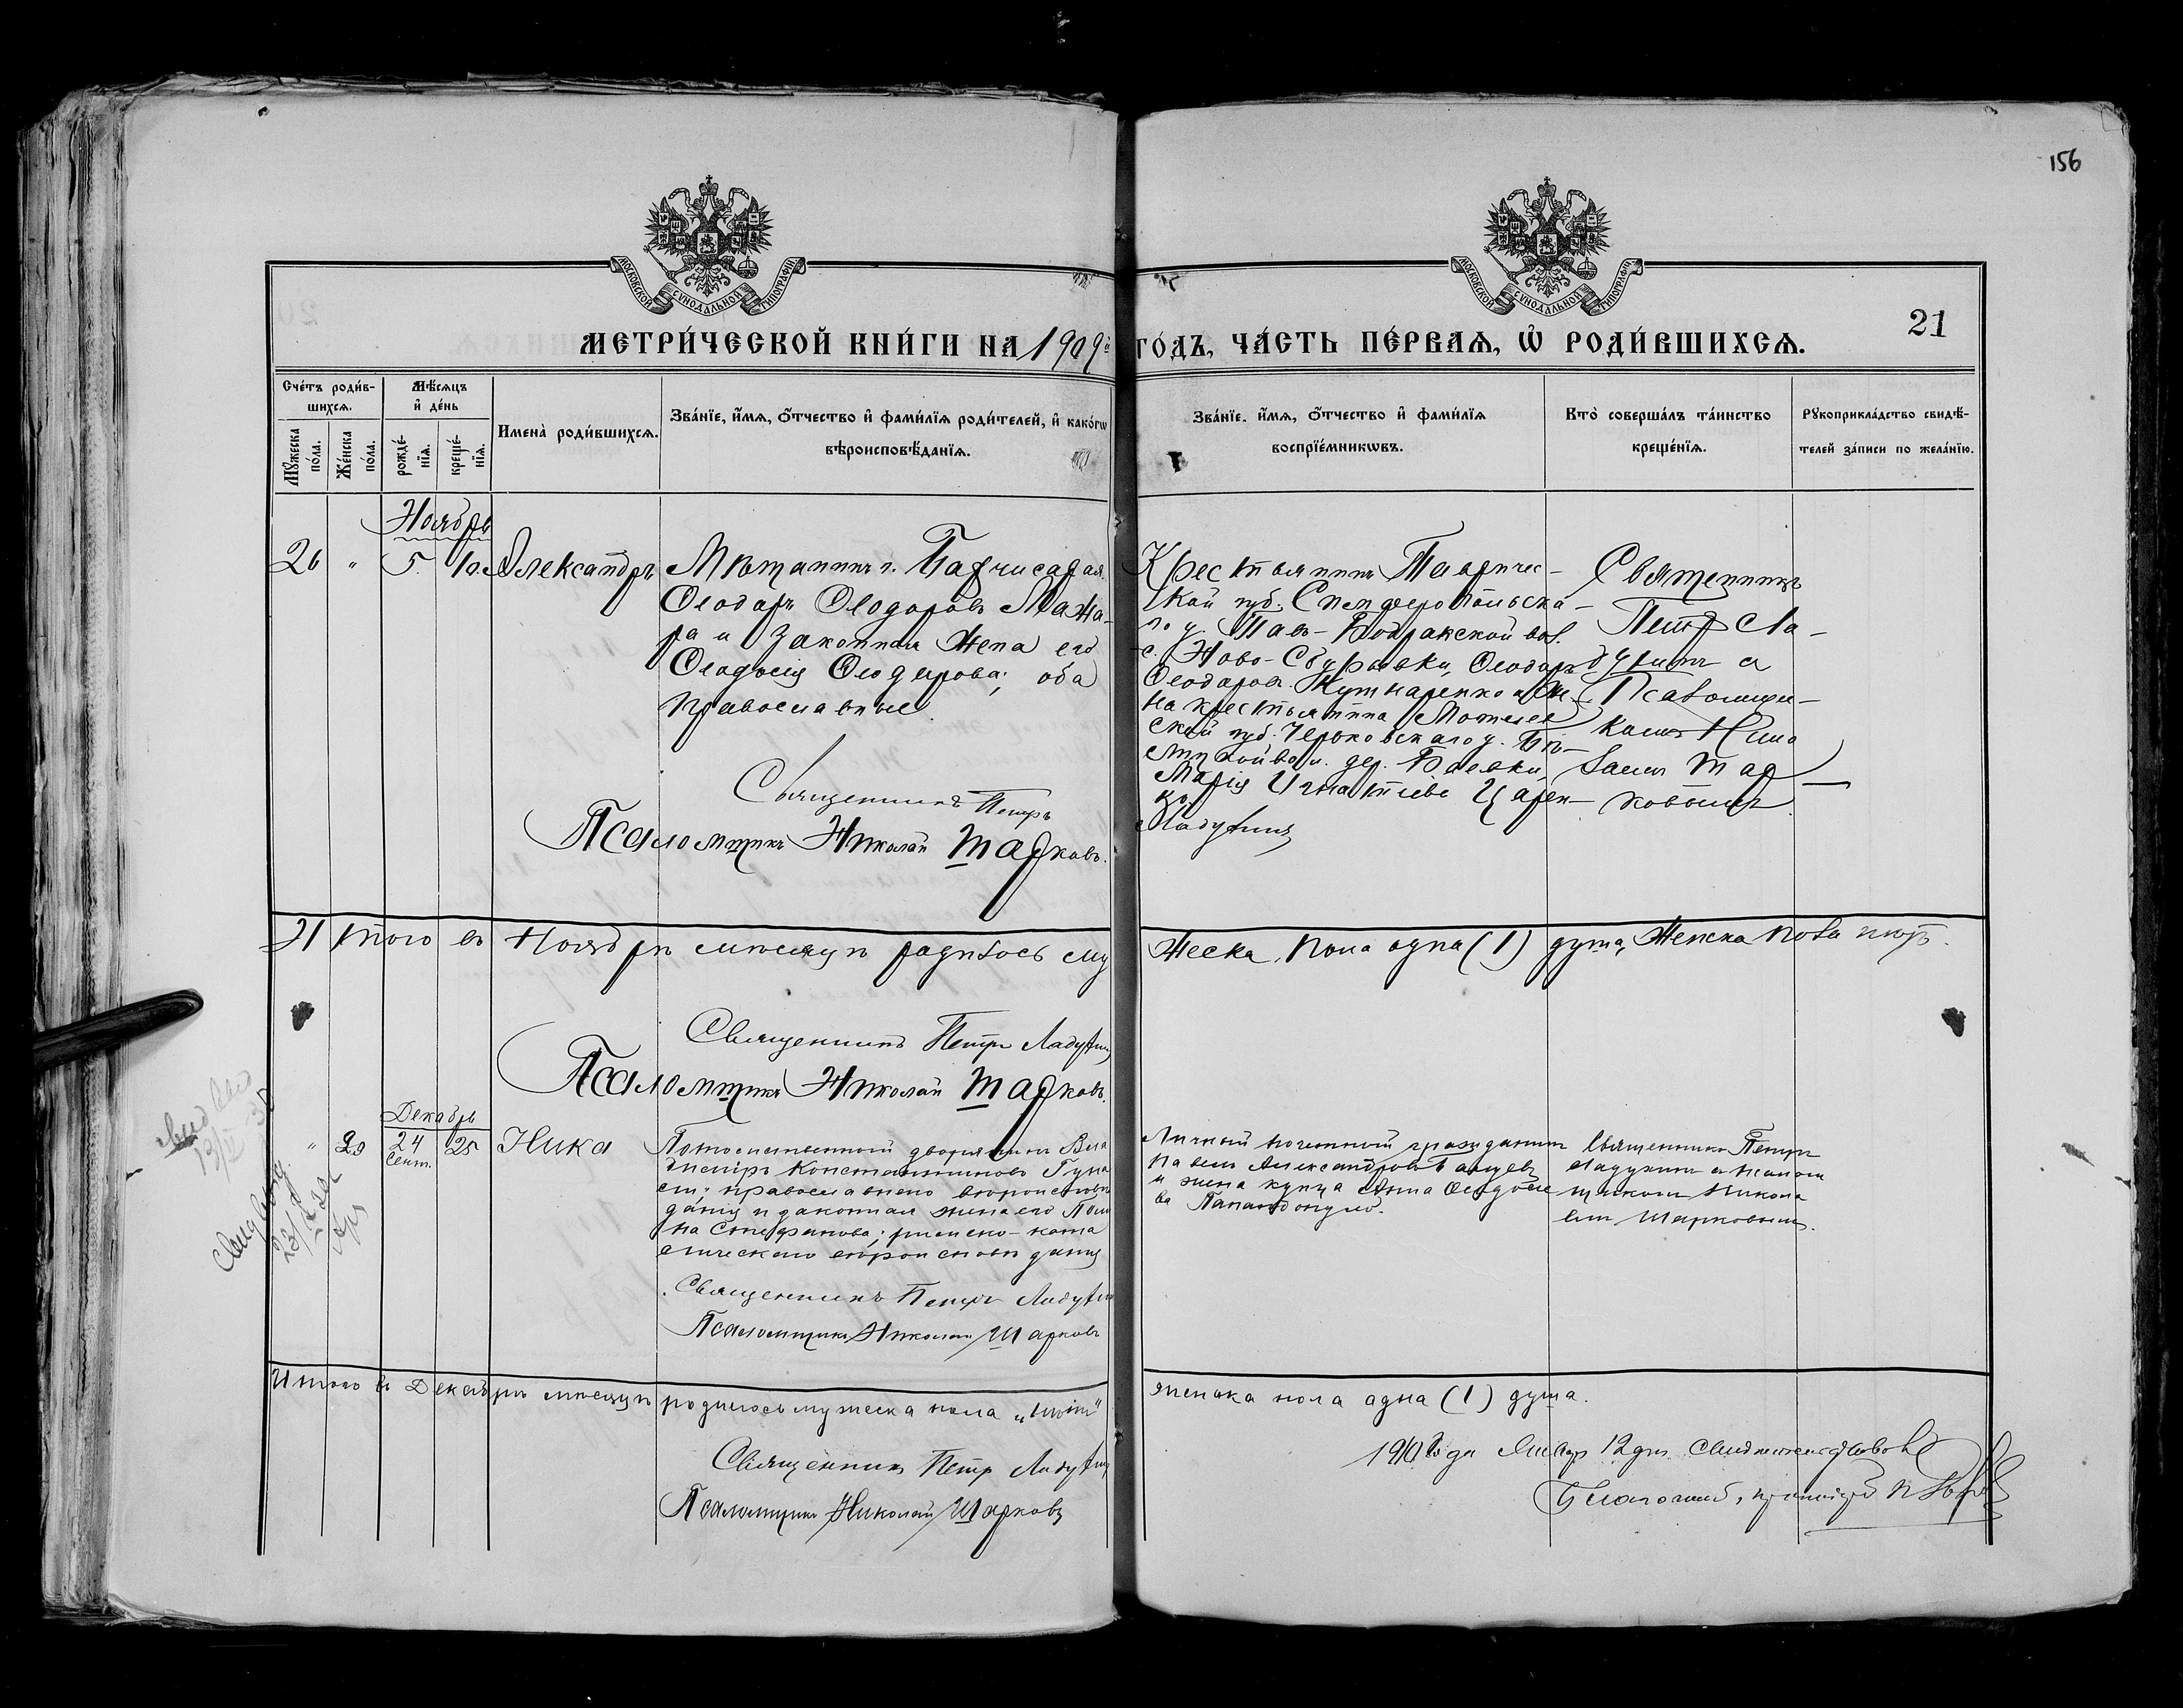 156
МОСКОВСКОЙ СѴНОДАЛЬНОЙ ТИПОГРАФІИ
МОСКОВСКОЙ СѴНОДАЛЬНОЙ ТИПОГРАФІИ
21
МЕТРИ́ЧЕСКОЙ КНИ́ГИ НА 1909й ГО́ДЪ, ЧА́СТЬ ПЕ́РВАѦ, Ѡ҆ РОДИ́ВШИХСѦ.
Сче́тъ роди́в-
шихсѧ.
Мꙋ́жеска по́ла.
Же́нска по́ла.
Мѣ́сѧцъ
и҆ де́нь
рожде́-
нїѧ.
креще́-
нїѧ.
Имена̀ роди́вшихсѧ.
Зва́нїе, и҆́мѧ, ѻ҆́тчество и҆ фами́лїѧ роди́телей, и҆ како́гѡ
вѣроисповѣ́данїѧ.
Зва́нїе, и҆́мѧ, ѻ҆́тчество и҆ фами́лїѧ
воспрїе́мникѡвъ.
Кто̀ соверша́лъ та́инство
креще́нїѧ.
Рꙋкоприкла́дство свидѣ́-
телей за́писи по жела́нїю.
Ноябрь
26 " 5. 10. Александръ
Мѣщанинъ г. Бахчисарая
Ѳеодоръ Ѳеодоровъ Мажа-
ра и законная жена его
Ѳеодосія Ѳеодорова; оба
православные.
Священникъ Петръ
Псаломщикъ Николай Шарковъ.
Крестьянинъ Тавричес-
кой губ. Симферопольска-
го у. Тав-Бодракской вол.
с. Ново-Сбурьевки, Ѳеодоръ
Ѳеодоровъ Кушнаренко и же-
на крестьянина Могилев
ской губ. Чериковскаго у.
вол. дер. Баевки,
Марія Игнатіева Царен-
ко.
Ладухинъ
Священникъ
Петръ Ла-
духинъ и
Псаломщи-
комъ Нико
лаемъ Шар
ковымъ.
Итого въ Ноябрѣ мѣсяцѣ родилось му жеска пола одна (1) душа, женска пола нѣтъ.
Священникъ Петръ Ладухинъ
Псаломщикъ Николай Шарковъ.
Декабрь
" 20 24 25 Ника
Сент.
Потомственный дворянинъ Вла
диміръ Константиновъ
православнаго вѣроисповѣ
данія и законная жена его
на Стефанова; римско-като
лическаго вѣроисповѣданія
Священникъ Петръ Ладухинъ
Псаломщикъ Николай Шарковъ
Личный почетный гражданинъ
Павелъ Александровъ
и жена купца Анна Ѳеодосіе
ва
Священникъ Петръ
Ладухинъ и псалом
щикомъ Никола
емъ Шарковымъ.
Итого въ Декабрѣ мѣсяцѣ родилось мужеска пола "нѣтъ" женска пола одна (1) душа.
Священникъ Петръ Ладухинъ
Псаломщикъ Николай Шарковъ
1910 года Января 12 дня